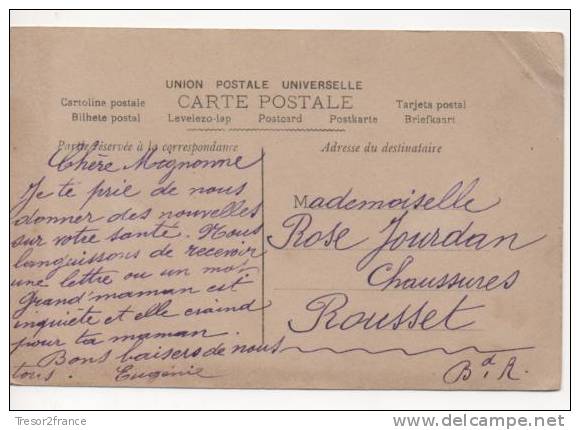 UNION POSTALE UNIVERSELLE
CARTE POSTALE
Cartolina postale
Tarjeta postal
Bilhete postal Levelezo-lap Postcard Postkarte Briefkaart
Partie réservée à la correspondance
Adresse du destinataire
Chère Mignonne
Je te prie de nous
donner des nouvelles
sur votre santé. Nous
languissons de recevoir
une lettre ou un mot
Grand'maman est
inquiète et elle craind
pour ta maman.
Bons baisers de nous
tous. Eugénie
Mademoiselle
Rose Jourdan
Chaussures
Rousset
Bd. R.
Tresor2france
http://www.delcampe.net